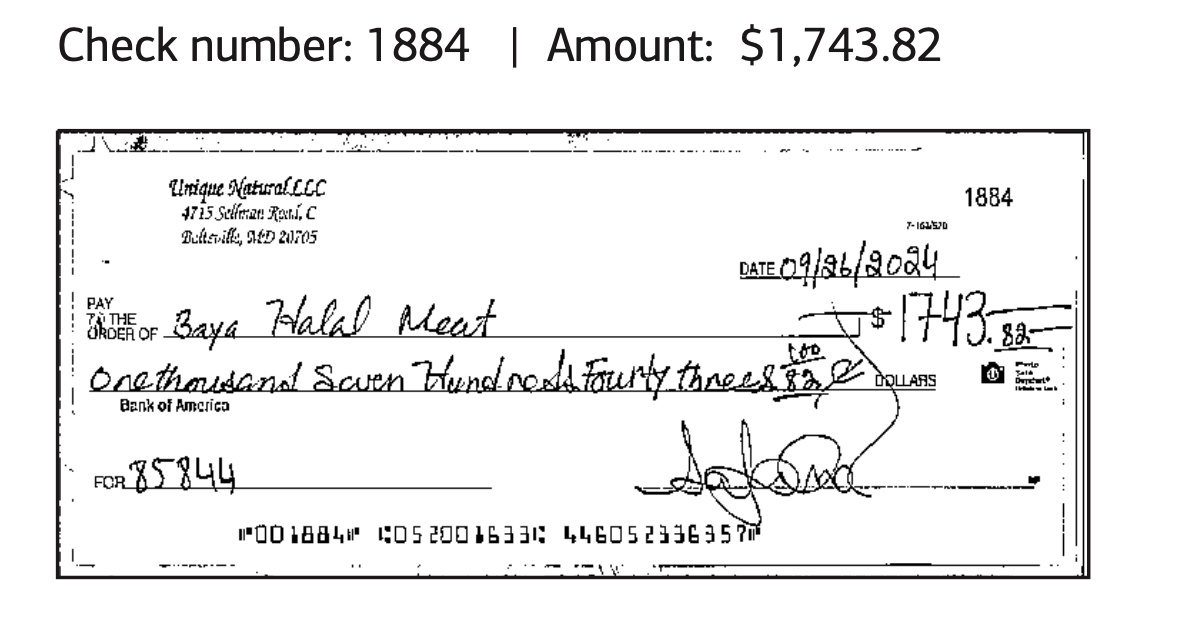 Check number: 1884 | Amount: $1,743.82
Unique Natural LLC
4715 Sellman Road, C
Beltsville, MD 20705
1884
7-163/520
DATE 09/26/2024
PAY TO THE ORDER OF Baya Halal Meat $ 1743.82
One thousand Seven Hundreds Fourty threes 100/82 DOLLARS
Bank of America
Photo Safe Deposit®
FOR 85844
MP
⑈001884⑈ ⑆052001633⑆ 446052336357⑈